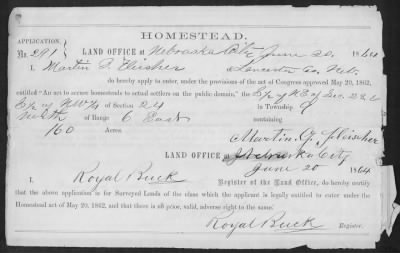 HOMESTEAD.
APPLICATION
No. 291
LAND OFFICE at Nebraska City June 20, 1864
I, Martin G. Fleisher of Lancaster Co. Neb.
do hereby apply to enter, under the provisions of the act of Congress approved May 20, 1862,
entitled "An act to secure homesteads to actual settlers on the public domain," the E½ of NE of Sec. 23 &
of NW¼ of Section 24 in Township 9
North of Range 6 East containing
160 Acres.
Martin G. Fleischer
LAND OFFICE at Nebraska City
June 20 1864
I, Royal Buck Register of the Land Office, do hereby certify
that the above application is for Surveyed Lands of the class which the applicant is legally entitled to enter under the
Homestead act of May 20, 1862, and that there is no prior, valid, adverse right to the same.
Royal Buck
Register.